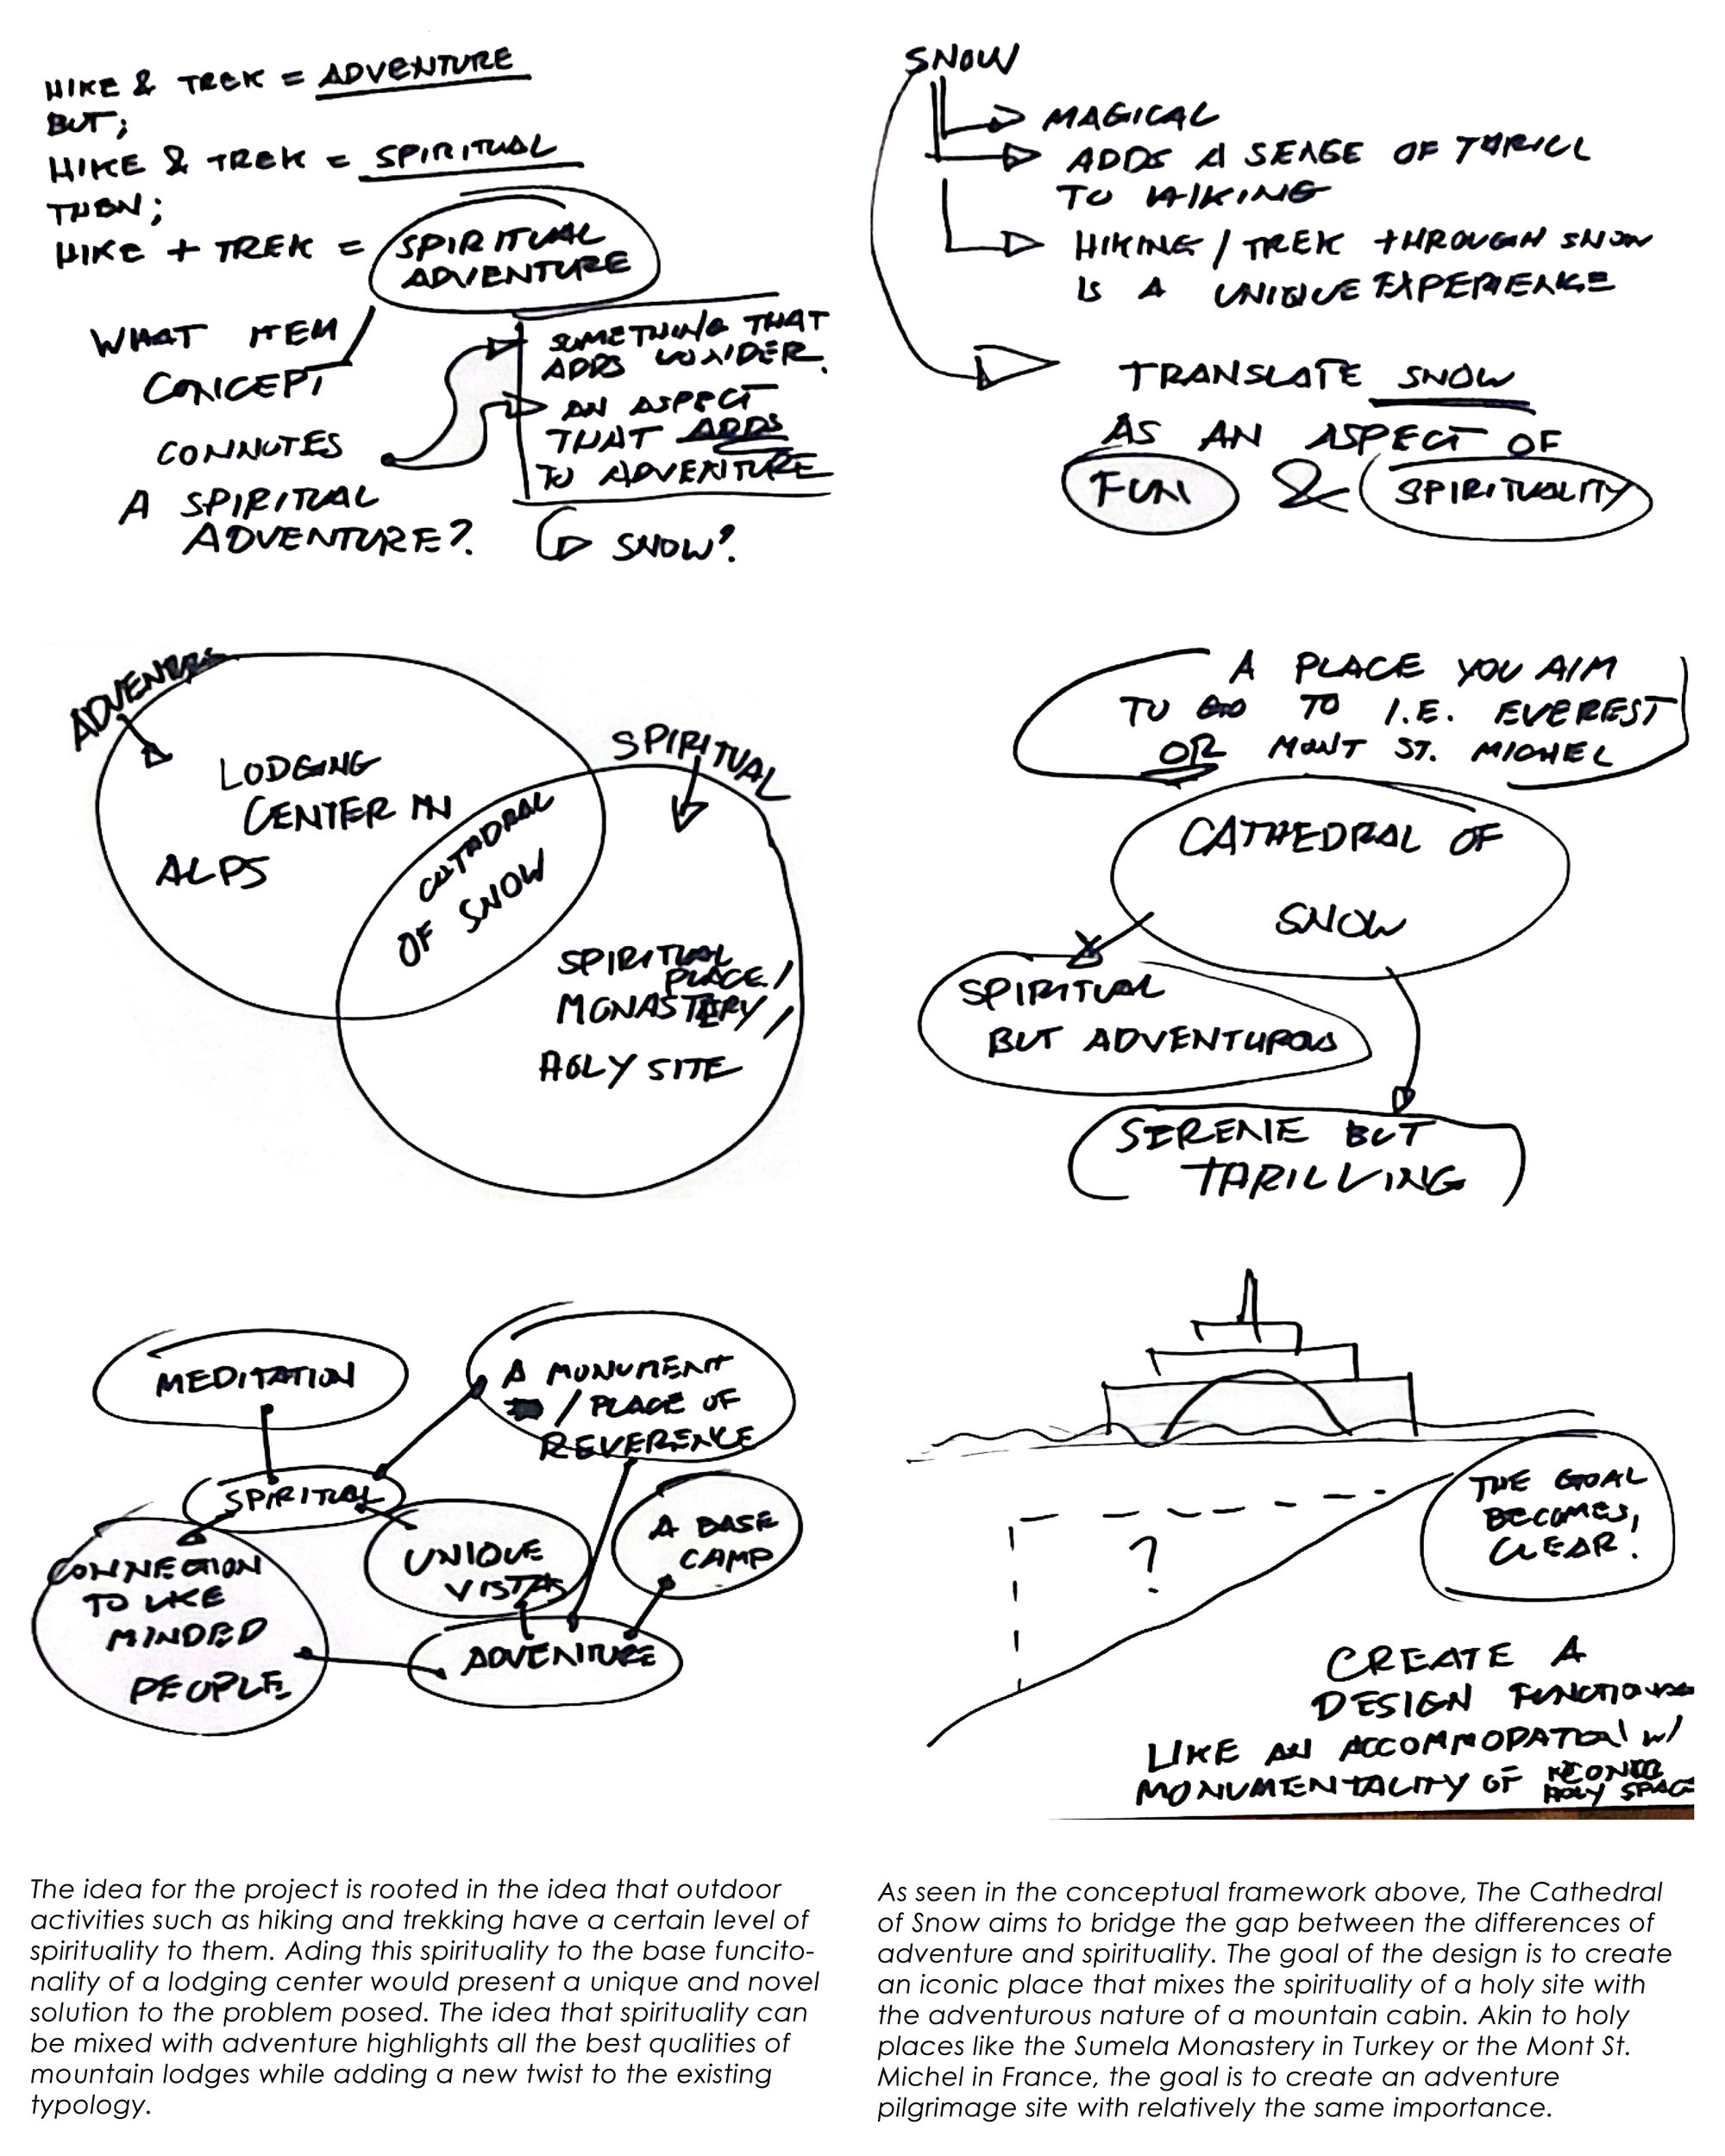 HIKE & TREK = ADVENTURE
BUT;
HIKE & TREK = SPIRITUAL
THEN;
HIKE + TREK = SPIRITUAL
ADVENTURE
WHAT ITEM
CONCEPT
CONNOTES
A SPIRITUAL
ADVENTURE?
SOMETHING THAT
ADDS WONDER.
AN ASPECT
THAT ADDS
TO ADVENTURE
SNOW?
SNOW
MAGICAL
ADDS A SENSE OF THRILL
TO HIKING
HIKING / TREK THROUGH SNOW
IS A UNIQUE EXPERIENCE
TRANSLATE SNOW
AS AN ASPECT OF
FUN & SPIRITUALITY
ADVENTURE
LODGING
CENTER IN
ALPS
CATHEDRAL
OF SNOW
SPIRITUAL
SPIRITUAL
PLACE/
MONASTERY/
HOLY SITE
A PLACE YOU AIM
TO GO TO I.E. EVEREST
OR MONT ST. MICHEL
CATHEDRAL OF
SNOW
SPIRITUAL
BUT ADVENTUROUS
SERENE BUT
THRILLING
MEDITATION
A MONUMENT
/ PLACE OF
REVERENCE
SPIRITUAL
CONNECTION
TO LIKE
MINDED
PEOPLE
UNIQUE
VISTAS
A BASE
CAMP
ADVENTURE
?
THE GOAL
BECOMES,
CLEAR.
CREATE A
DESIGN FUNCTIONING
LIKE AN ACCOMMODATION W/
MONUMENTALITY OF ICONIC
HOLY SPACE
The idea for the project is rooted in the idea that outdoor
activities such as hiking and trekking have a certain level of
spirituality to them. Ading this spirituality to the base funcito-
nality of a lodging center would present a unique and novel
solution to the problem posed. The idea that spirituality can
be mixed with adventure highlights all the best qualities of
mountain lodges while adding a new twist to the existing
typology.
As seen in the conceptual framework above, The Cathedral
of Snow aims to bridge the gap between the differences of
adventure and spirituality. The goal of the design is to create
an iconic place that mixes the spirituality of a holy site with
the adventurous nature of a mountain cabin. Akin to holy
places like the Sumela Monastery in Turkey or the Mont St.
Michel in France, the goal is to create an adventure
pilgrimage site with relatively the same importance.